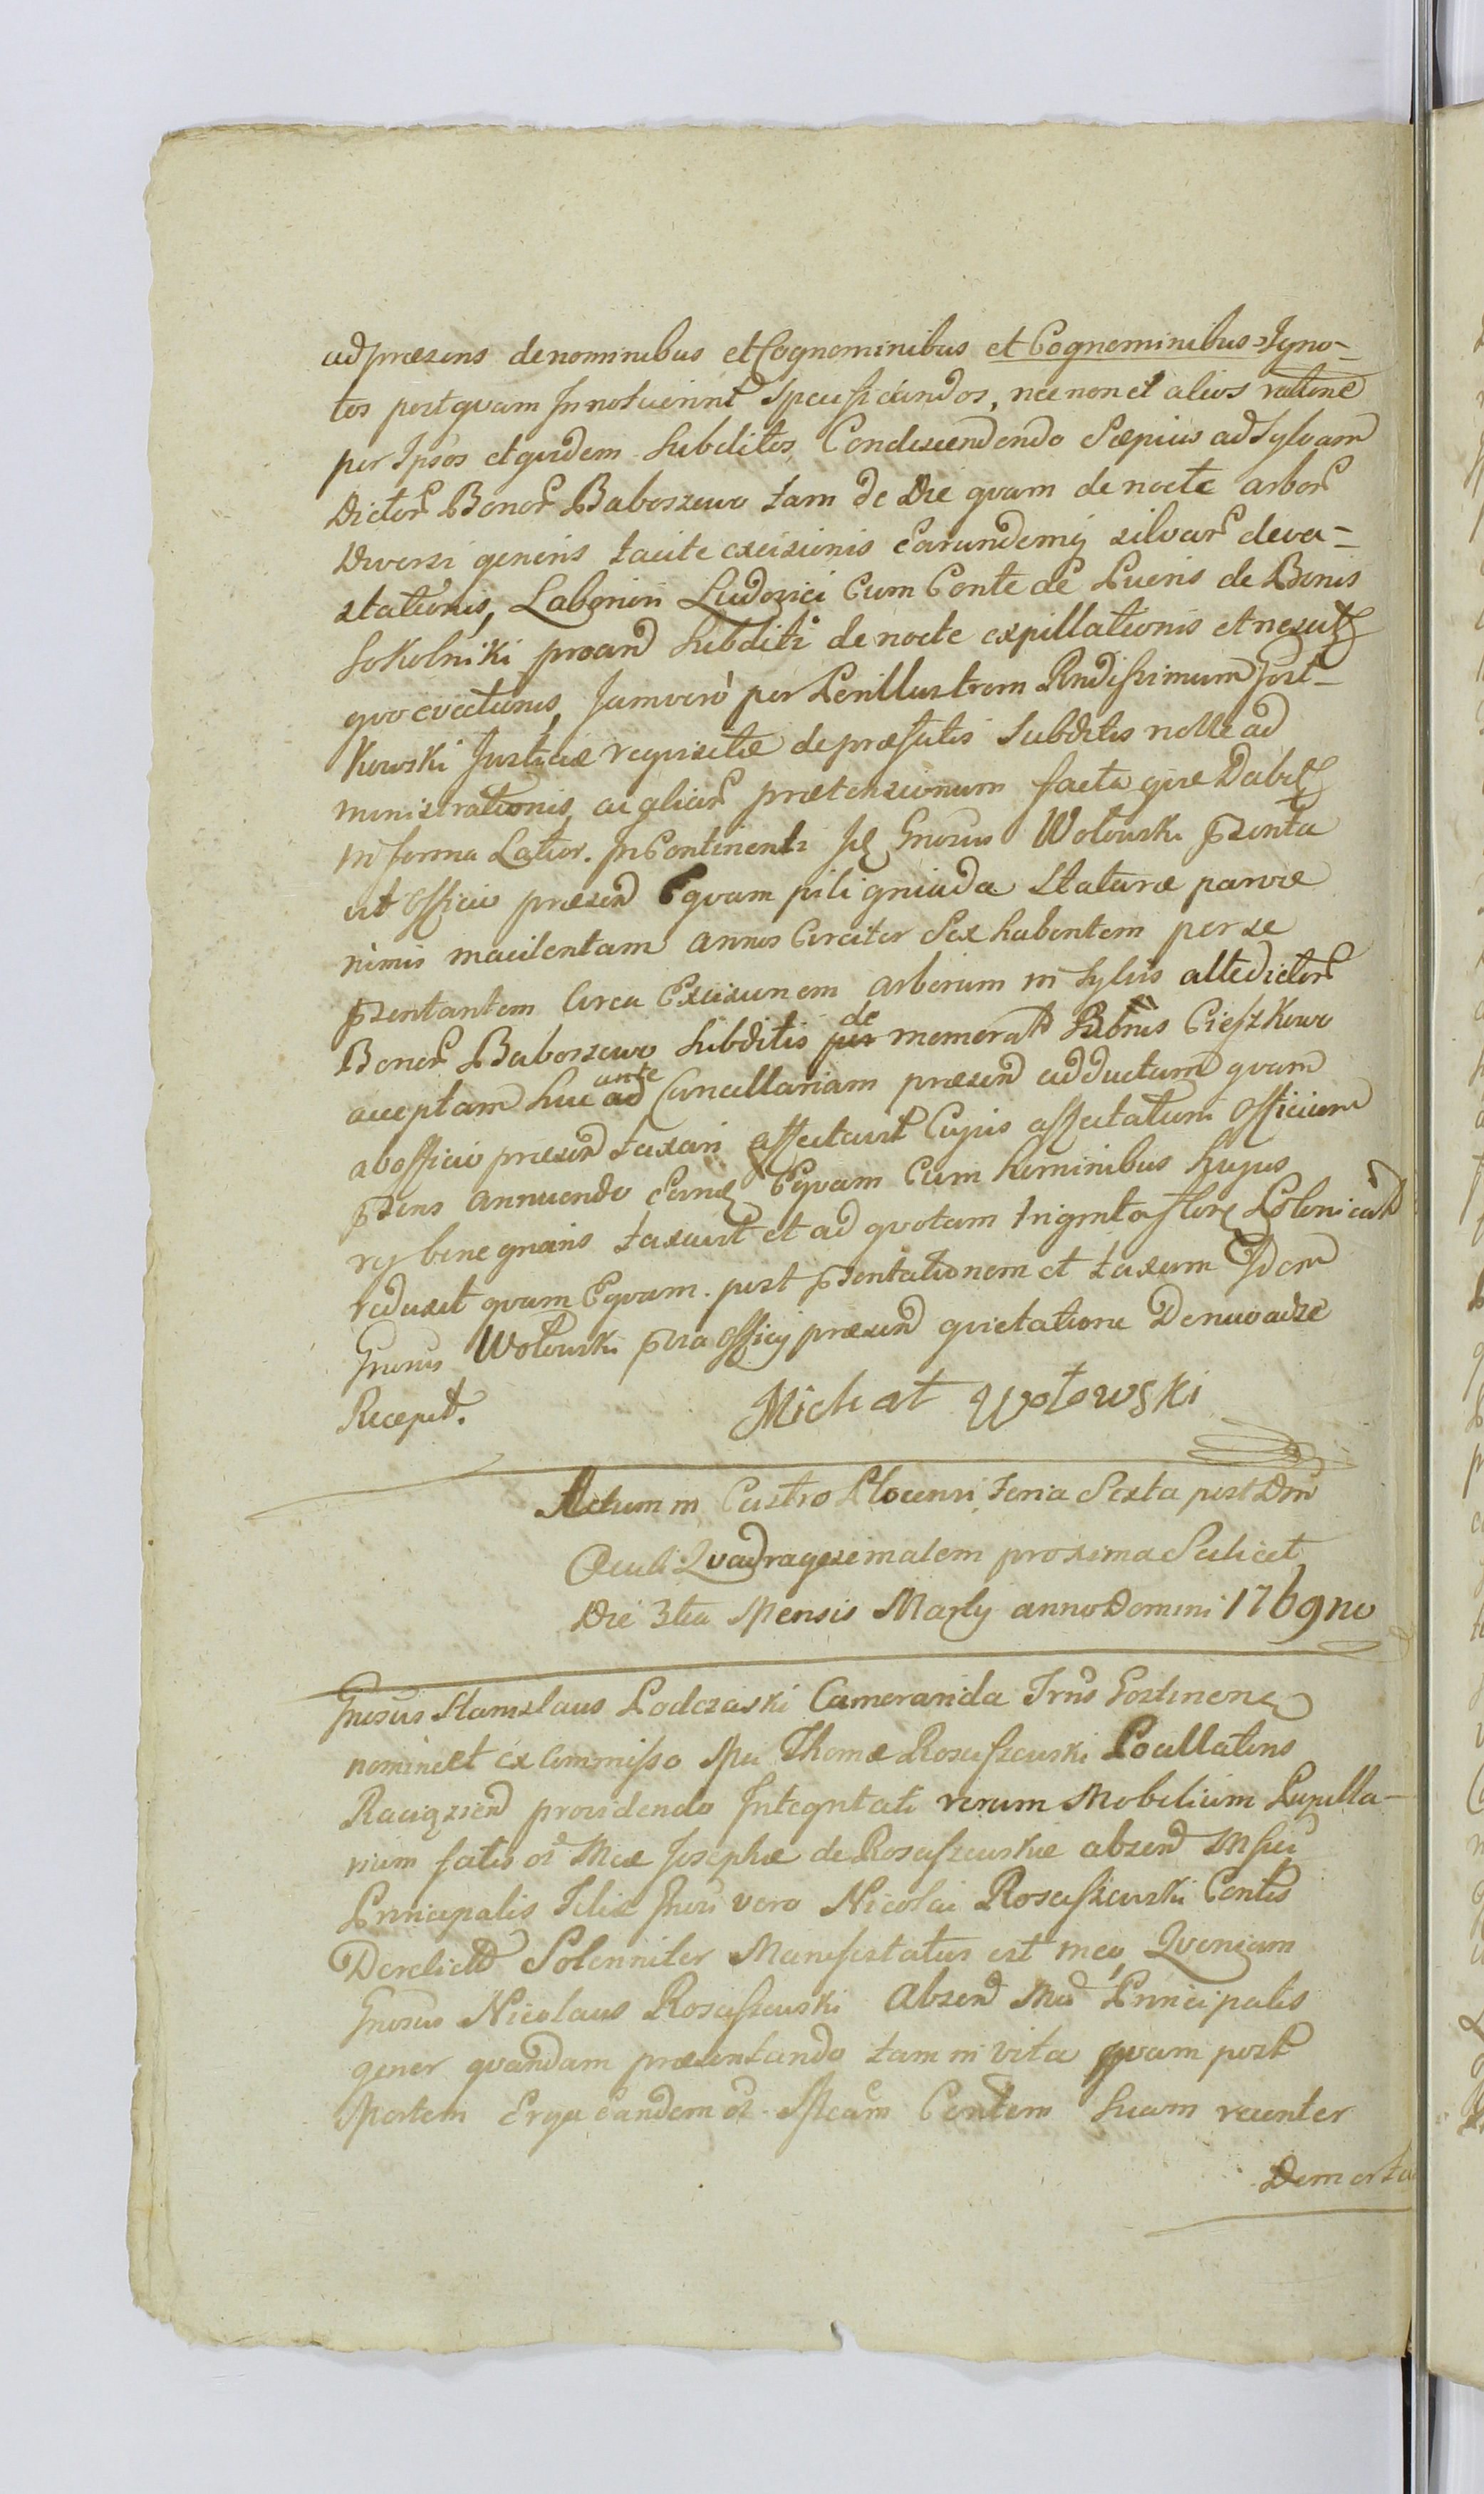 ad præsens denominibus et Cognominibus et Cognominibus Igno-
tos postqvam Innotuerint Specificandos, nec non et alios ratione
per Ipsos et qvidem Subditos Condescendendo Sæpius ad Sylvam
Dictor Bonor Baboszewo tam de Die qvam de nocte arbor
Diversi generis tacite excisionis Earundemq silvar deva-
stationis, Laboriosi Ludovici Cum Conte de Pueris de Bonis
Sokolniki Subditi de nocte expillationis et
evectionis, Jamvero per Perillustrem Rndissimum Gost-
kowski Justitiæ reqvisitæ de præfatis Subditis nolle ad
ministrationis, ac aliar prætensionum facta qvæ Dabit
in forma Latior. In Continenti Id Gnosus Wołowski pzenta
vit Officio præsend Eqvam pili gniada Staturæ parvæ
nimis macilentam annos Circiter Sex habentem per se
pzentantem Circa Excisionem arborum in Sylvis altedictor
Bonor Baboszewo Subditis per de memorat Bonis Cieszkowo
acceptam huc ad ante Cancellariam præsend adductam qvam
ab officio præsend taxari affectavit Cujus affectationi Officium
pzens annuendo Eand Eqvam Cum hominibus hujus
rei bene gnaris taxavit et ad qvotam triginta flor Polonical
reduxit qvam Eqvam post pzentationem et taxam Idem
Gnosus Wołowski Officij præsend qvietatione Denuo ad se
Recepit.
Michał Wołowski
Actum in Castro Plocensi Feria Sexta post Dni
Oculi Qvadragesimalem proxima Scilicet
Die 3tia Mensis Martij anno Domini 1769no
Gnosus Stanislaus Podczaski Camerarida Trris Gostinens
nomine et ex Commisso Thomæ Rosciszewski Pocillatoris
Raciązsend providendo Integritati rerum Mobilium Pupilla-
rium fatis Mcæ Josephæ de Rosciszewskie absend Msci
Principalis Filiæ Gnosi vero Nicolai Rosciszewski Contis
Derelict Solenniter Manifestatus est meo, Qvoniam
Gnosus Nicolaus Rosciszewski Absend Principalis
gener qvandam præsentando tam in vita qvam post
Mortem Erga Eandem Contem Suam recenter
Demorta